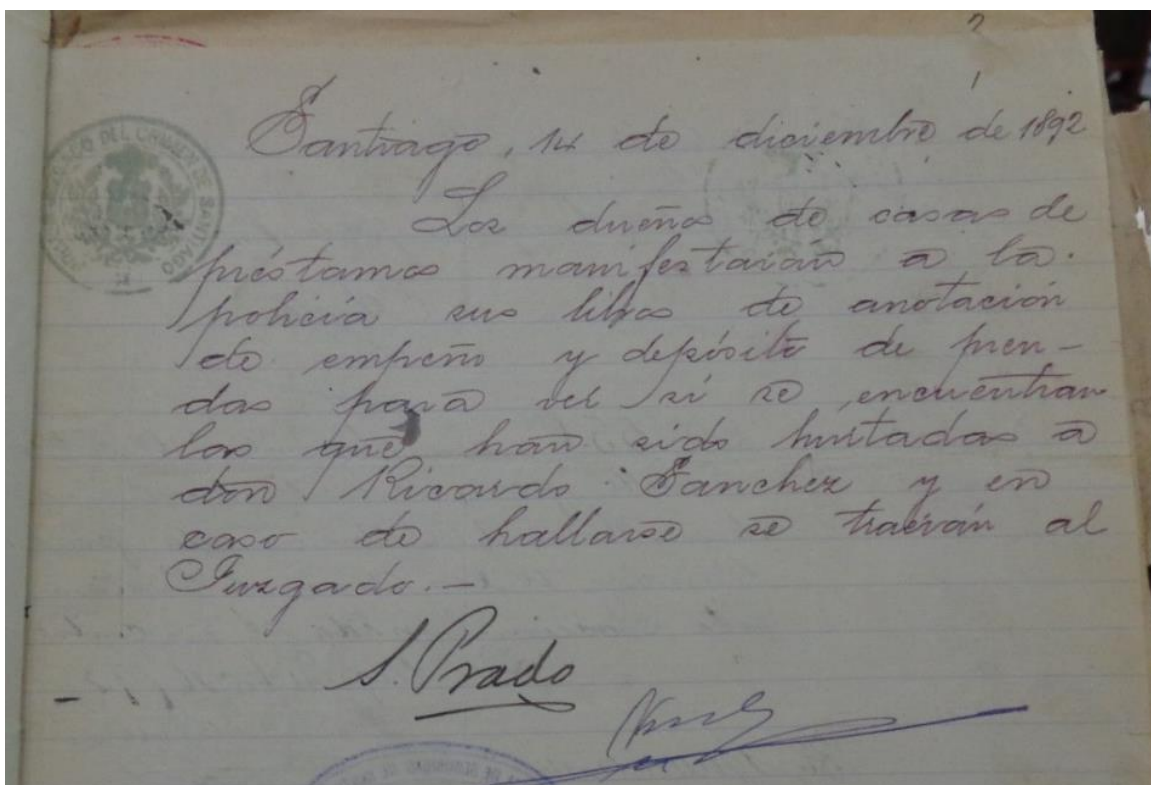 2
1
Santiago, 14 de diciembre de 1892
Los dueños de casas de
préstamos manifestarán a la
policía sus libros de anotación
de empeño y depósito de pren-
das para ver si se encuentran
las que han sido hurtadas a
don Ricardo Sanchez y en
caso de hallarse se traerán al
Juzgado.—
S. Prado
DEL CRIMEN DE SANTIAGO